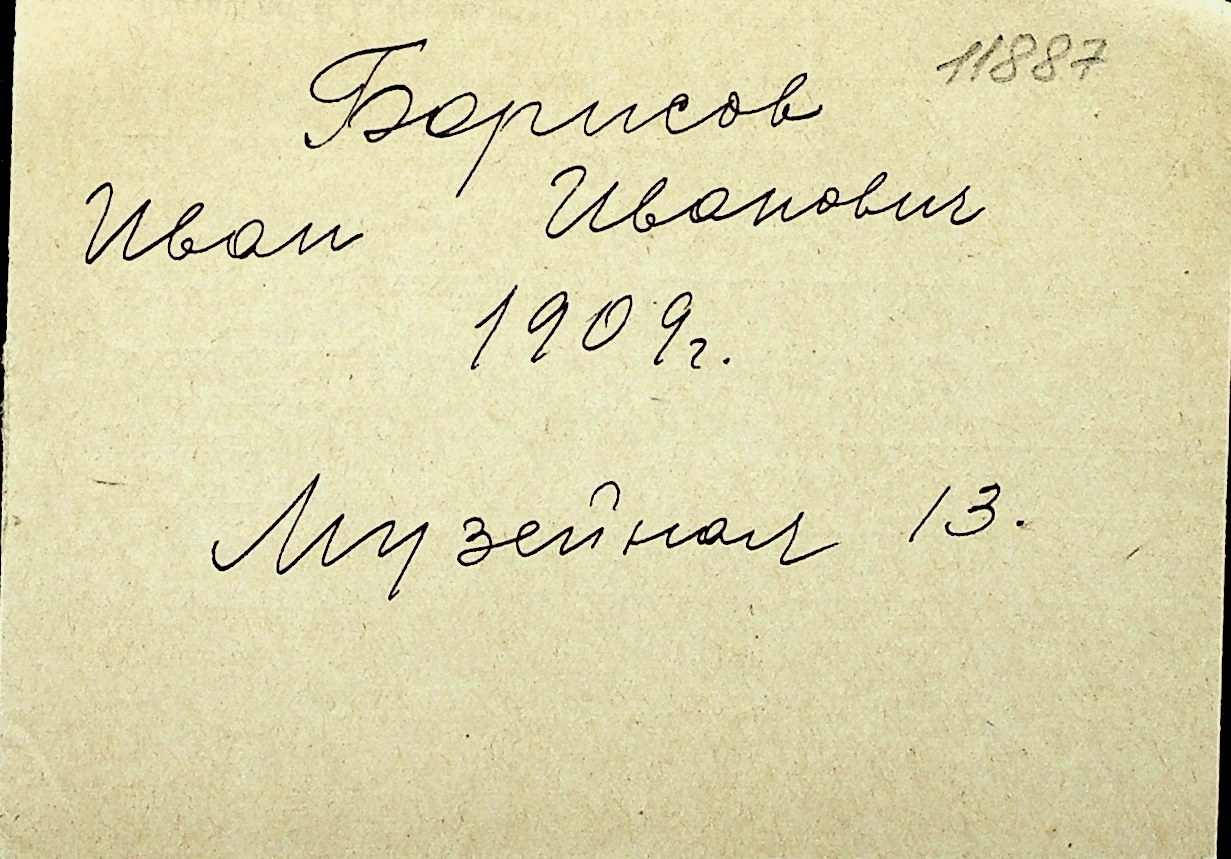 11887
Борисов
Иван Иванович
1909г.
Музейная 13.